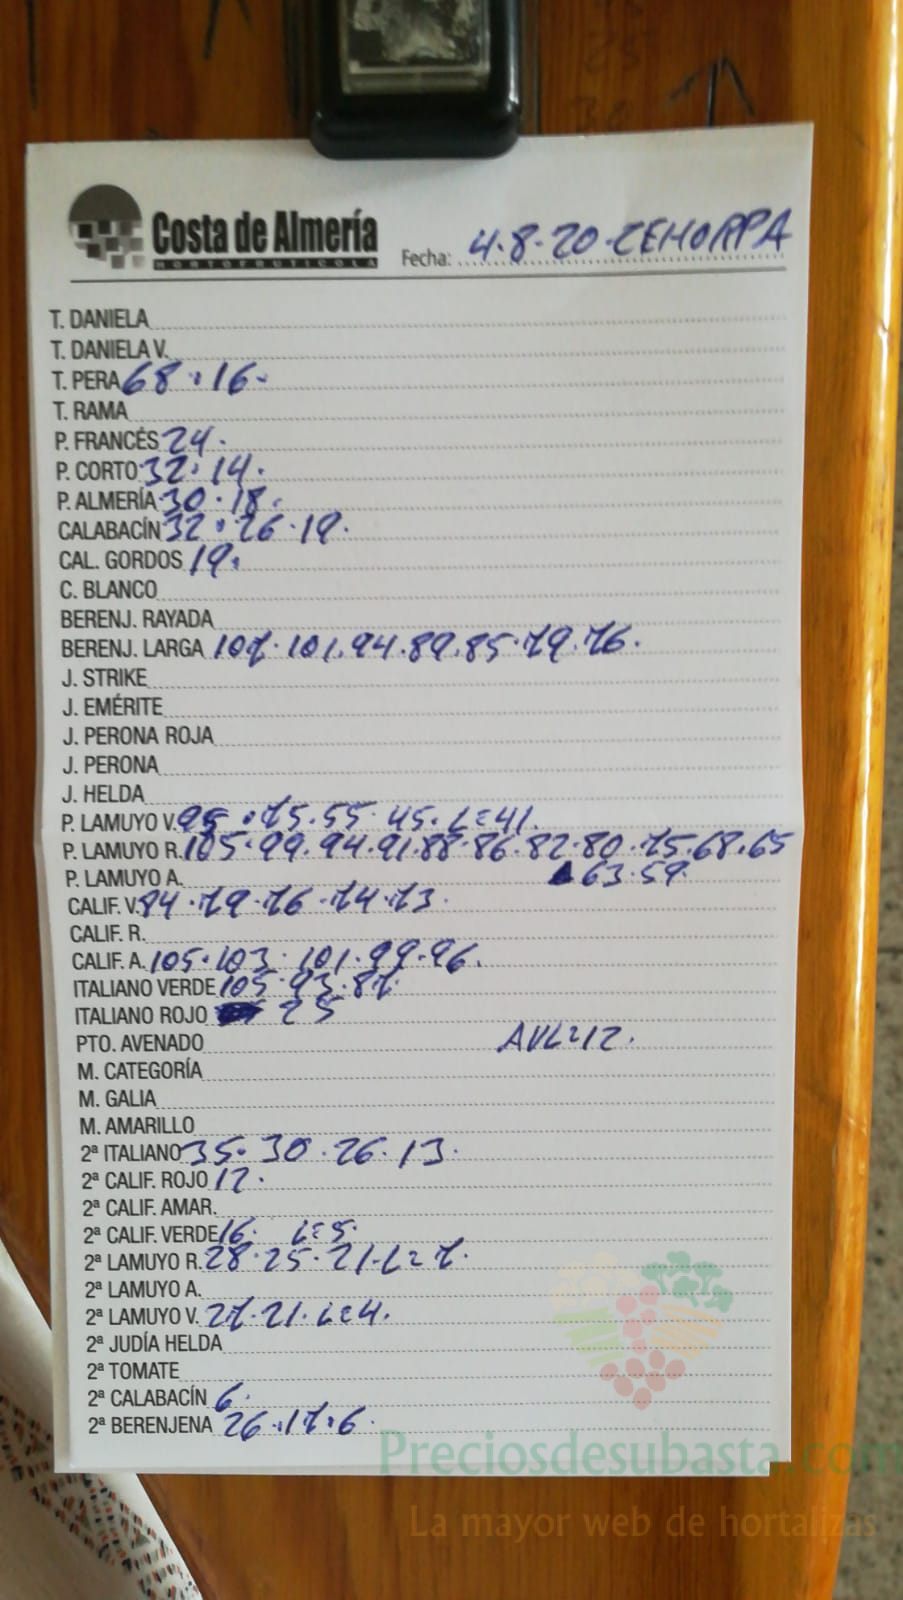 Costa de Almería
HORTOFRUTICOLA
Fecha: 4.8.20-CEHORPA
T. DANIELA
T. DANIELA V.
T. PERA 68.16.
T. RAMA
P. FRANCÉS 24.
P. CORTO 32.14.
P. ALMERÍA 30.18.
CALABACÍN 32.26.19.
CAL. GORDOS 19.
C. BLANCO
BERENJ. RAYADA
BERENJ. LARGA 107.101.94.89.85.79.76.
J. STRIKE
J. EMÉRITE
J. PERONA ROJA
J. PERONA
J. HELDA
P. LAMUYO V. 95.75.55.45.L=41.
P. LAMUYO R. 105.99.94.91.88.86.82.80.75.68.65
P. LAMUYO A. 63.59.
CALIF. V. 84.79.76.74.73.
CALIF. R.
CALIF. A. 105.103.101.99.96.
ITALIANO VERDE 105.93.87.
ITALIANO ROJO 25
PTO. AVENADO AVL=12.
M. CATEGORÍA
M. GALIA
M. AMARILLO
2ª ITALIANO 35.30.26.13.
2ª CALIF. ROJO 12.
2ª CALIF. AMAR.
2ª CALIF. VERDE 16. L=5.
2ª LAMUYO R. 28.25.21.L=7.
2ª LAMUYO A.
2ª LAMUYO V. 27.21.L=4.
2ª JUDÍA HELDA
2ª TOMATE
2ª CALABACÍN 6.
2ª BERENJENA 26.17.6.
Preciosdesubasta.com
La mayor web de hortalizas